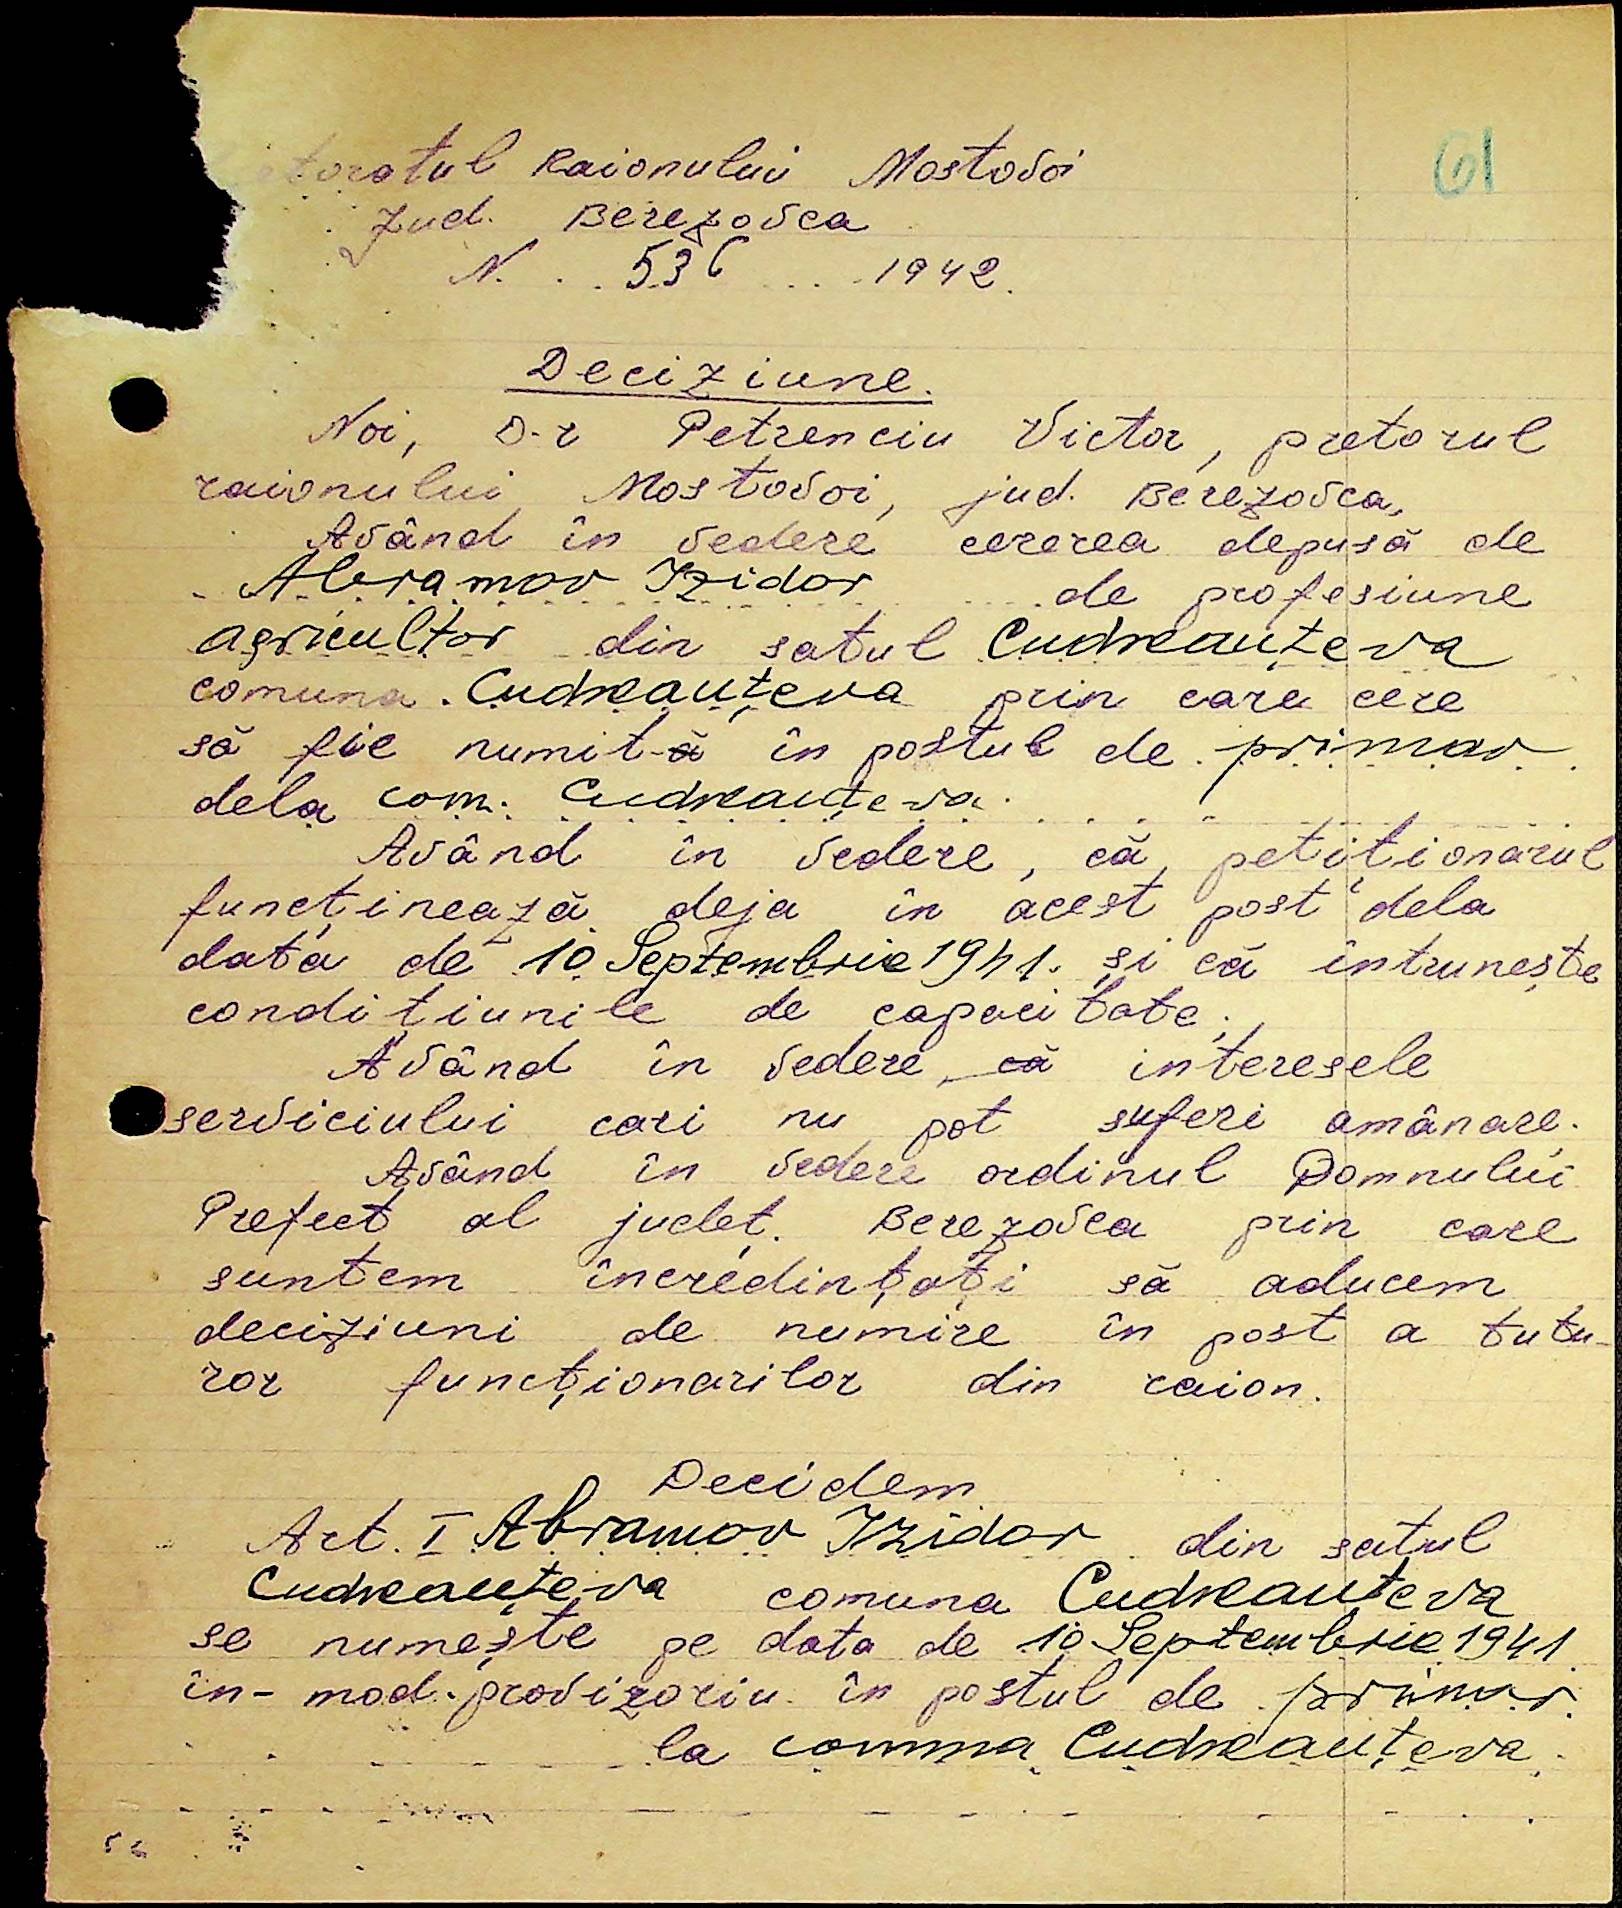 61
etoratul Raionului Mostovoi
Jud. Berezovca
N. . . 536 . . . 1942.
Deciziune.
Noi, D-r Petrenciu Victor, pretorul
raionului Mostovoi, jud. Berezovca,
Având în vedere cererea depusă de
Abramov Izidor de profesiune
agricultor din satul Cudreauțeva
comuna Cudreauțeva prin care cere
să fie numit-ă în postul de primar
dela com. Cudreauțeva.
Având în vedere, că petiționarul
funcținează deja în acest post dela
data de 10 Septembrie 1941. și că întrunește
condițiunile de capacitate;
Având în vedere, că interesele
serviciului cari nu pot suferi amânare.
Având în vedere ordinul Domnului
Prefect al județ. Berezovca prin care
suntem încredințați să aducem
deciziuni de numire în post a tutu-
ror funcționarilor din raion.
Decidem
Art. I Abramov Izidor din satul
Cudreauțeva comuna Cudreauțeva
se numește pe data de 10 Septembrie 1941
în- mod provizoriu în postul de primar.
la comuna Cudreauțeva.